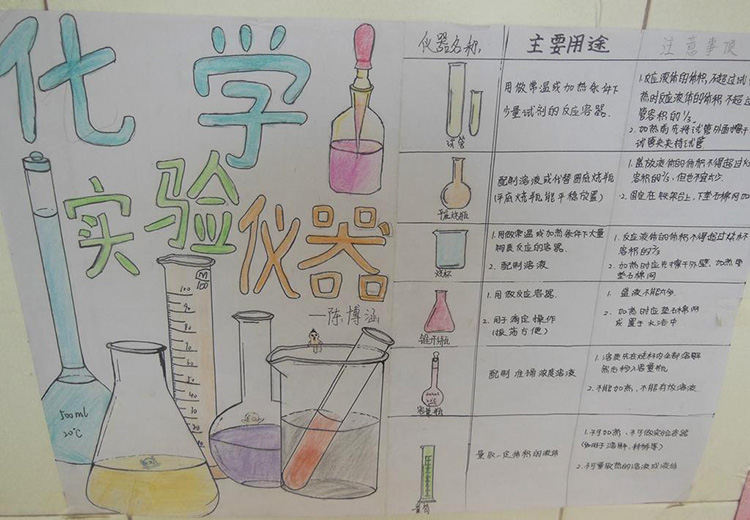 化学
实验仪器
—陈博涵
500ml
20℃
ml
100
仪器名称
主要用途
注意事项
试管
用做常温或加热条件下
少量试剂的反应容器.
1.反应液体的体积,不超过试
热时反应液体的体积不超过
管容积的1/3.
2.加热前先将试管外面擦干
试管夹夹持试管
平底烧瓶
配制溶液或代替圆底烧瓶
(平底烧瓶能平稳放置)
1.盛放液体的体积不得超过
容积的
2.固定在铁架台上,下垫石棉网加
烧杯
1.用做常温或加热条件下大量
物质反应的容器.
2.配制溶液
1.反应液体的体积不得超过烧杯
容积的
2.加热时应先擦干外壁.加热垫
垫石棉网
锥形瓶
1.用做反应容器.
2.用于滴定操作
(振荡方便)
1.盛液不能太多.
2.加热时应垫石棉网
或置于水浴中
容量瓶
配制准确浓度溶液
1.溶质先在烧杯内全部溶解
然后移入容量瓶
2.不能加热.不能存放溶液
量筒
量取一定体积的液体
1.不可加热.不可做反应容器
2.不可量取热的溶液或液体